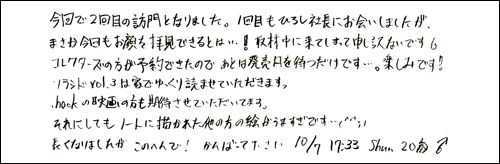 今回で2回目の訪問となりました。1回目もひろし社長にお会いしましたが、
まさか今回もお顔を拝見できるとは…!取材中に来てしまって申し訳ないです6
コレクターズの方が予約できたので あとは発売日を待つだけです…。楽しみです!!
ソランドvol.3は家でゆっくり読ませていただきます。
.hackの映画の方も期待させていただいてます。
それにしても ノートに描かれた他の方の絵がうますぎです…(^^;)
長くなりましたが このへんで! かんばって下さい 10/7 17:33 Shun 20歳 ♂